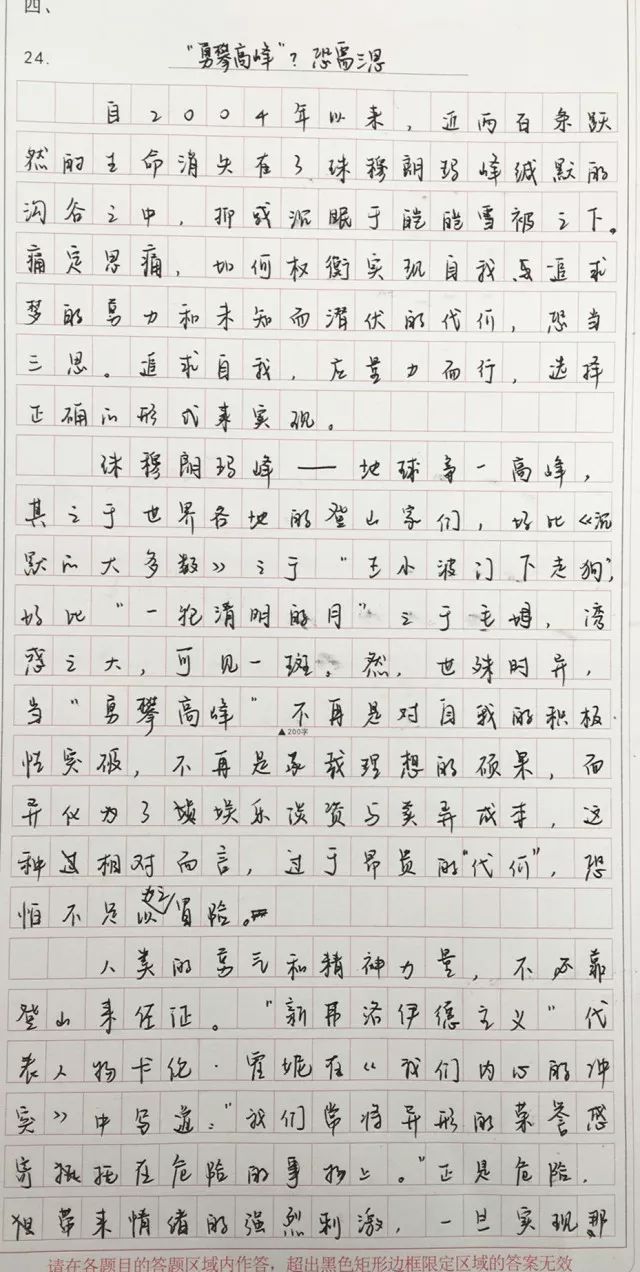 四、
24. “勇攀高峰”？恐需三思
自2004年以来，近两百条跃
然的生命消失在了珠穆朗玛峰缄默的
沟谷之中，抑或沉眠于皑皑雪被之下。
痛定思痛，如何权衡实现自我与追求
梦的勇力和未知而潜伏的代价，恐当
三思。追求自我，应量力而行，选择
正确的形式来实现。
珠穆朗玛峰——地球第一高峰，
其之于世界各地的登山家们，好比《沉
默的大多数》之于“王小波门下走狗”，
好比“一轮清明的月”之于毛姆，
之大，可见一斑。然，世殊时异，
当“勇攀高峰”不再是对自我的积极
性突破，不再是承载理想的硕果，而
异化为了娱乐谈资与卖弄成本，这
种过相对而言，过于昂贵的“代价”，恐
怕不足以为之冒险。
▲200字
人类的勇气和精神力量，不必靠
登山来佐证。“新弗洛伊德主义”代
表人物卡伦·霍妮在《我们内心的冲
突》中写道：“我们常将异形的荣誉感
寄托在危险的事物上。”正是危险，
带来情绪的强烈刺激，一旦实现那
请在各题目的答题区域内作答，超出黑色矩形边框限定区域的答案无效